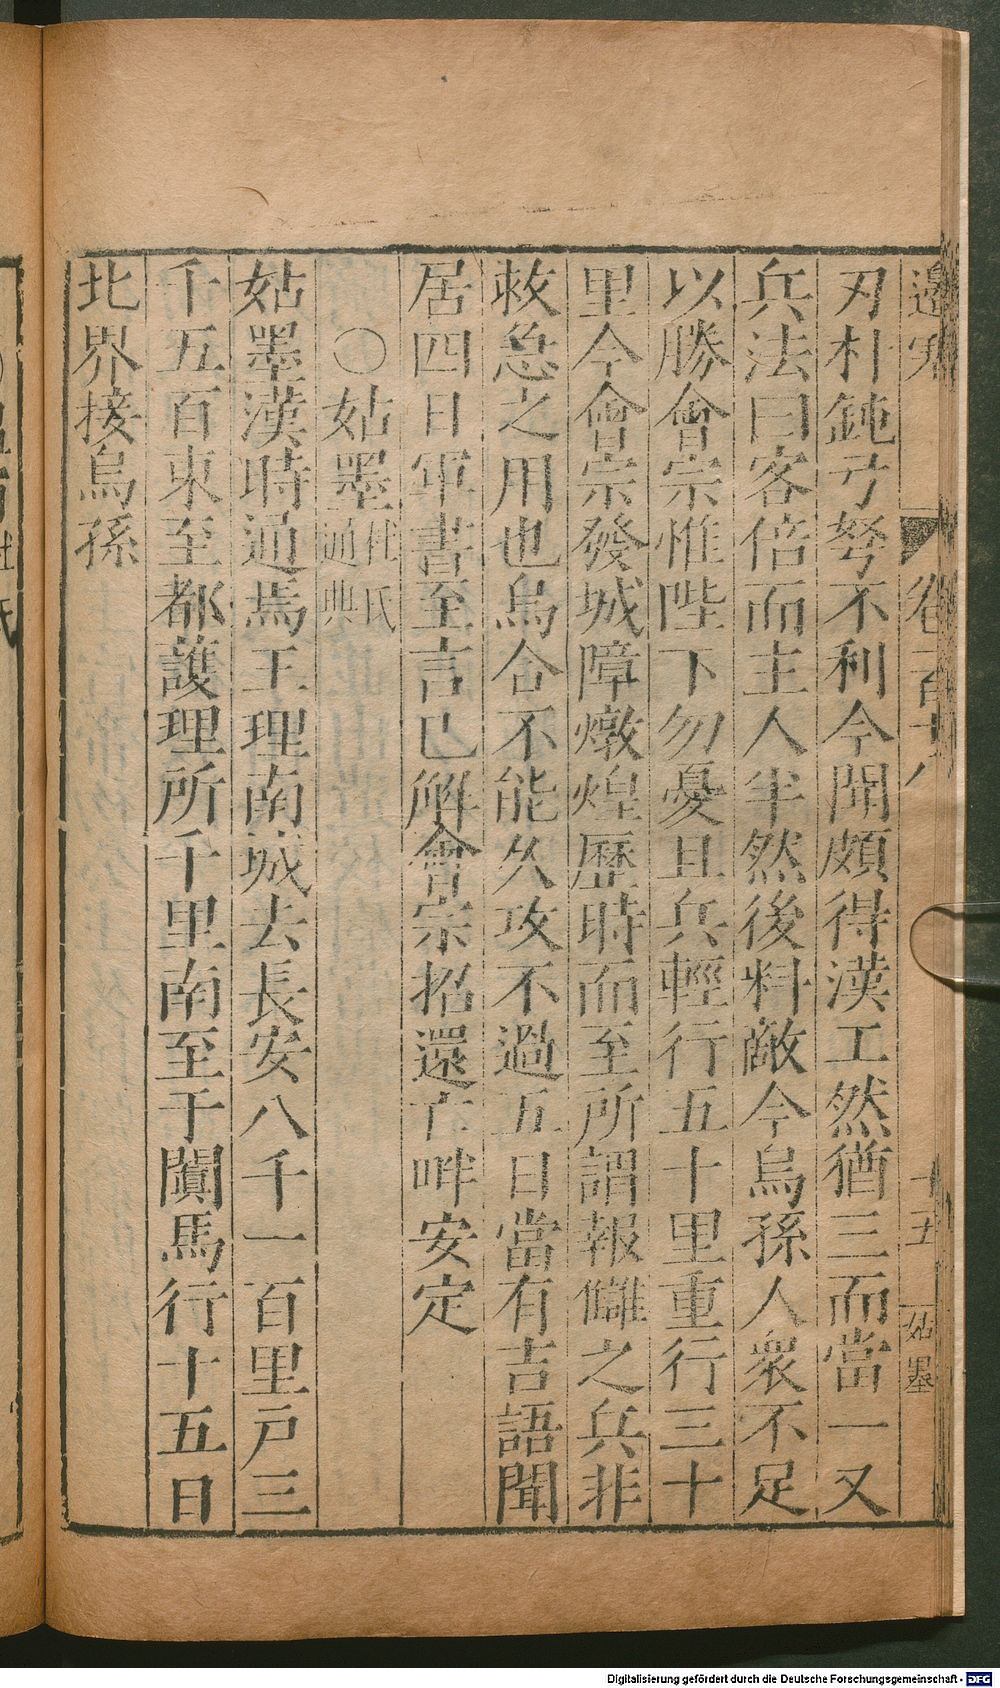 邊塞 卷二百十八 十五 姑墨
刃朴鈍弓弩不利今聞頗得漢工然猶三而當一又
兵法曰客倍而主人半然後料敵今烏孫人衆不足
以勝會宗惟陛下勿憂且兵輕行五十里重行三十
里今會宗發城障燉煌歷時而至所謂報讎之兵非
救急之用也烏合不能久攻不過五日當有吉語聞
居四日軍書至言已解會宗招還亡畔安定
〇姑墨杜氏通典
姑墨漢時通焉王理南城去長安八千一百里戶三
千五百東至都護理所千里南至于闐馬行十五日
北界接烏孫
Digitalisierung gefördert durch die Deutsche Forschungsgemeinschaft - DFG